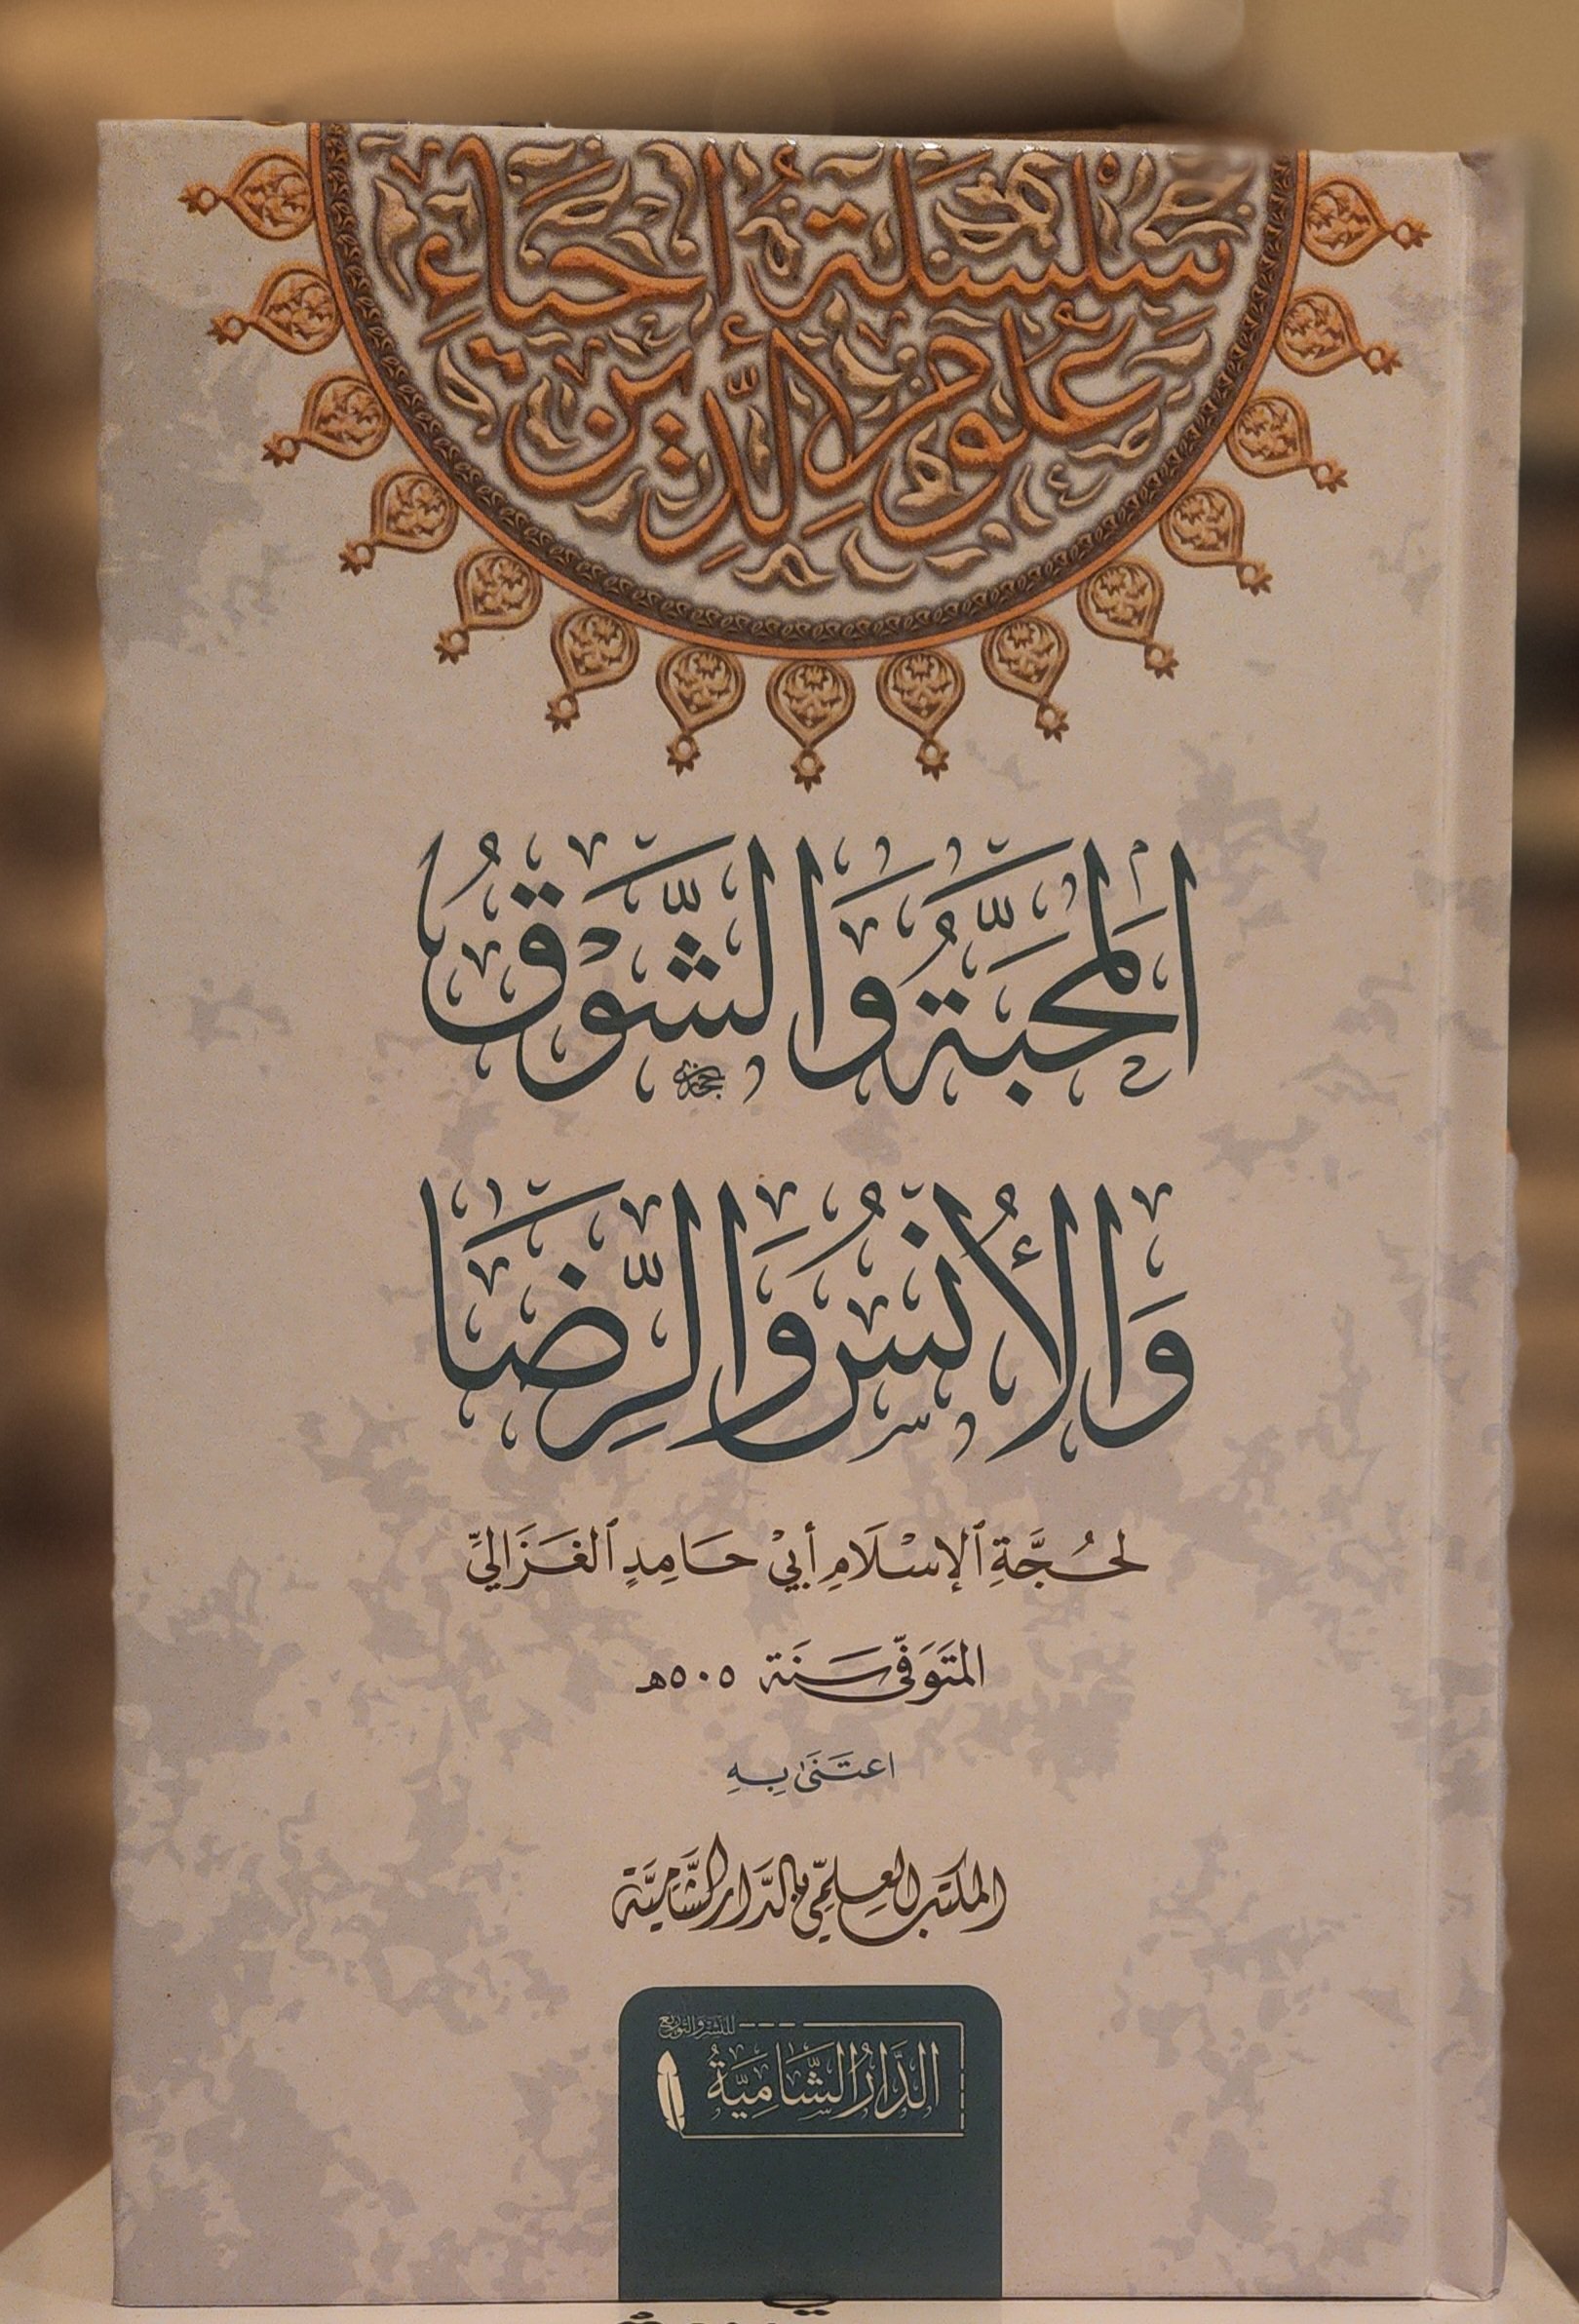 سِلْسِلَةُ إِحْيَاءِ
عُلُومِ الدِّينِ
اَلْمَحَبَّةُ وَالشَّوْقُ
وَالْأُنْسُ وَالرِّضَا
لِحُجَّةِ ٱلْإِسْلَامِ أَبِيْ حَامِدٍ ٱلْغَزَالِيِّ
المتَوَفّى سَنَة ٥٠٥هـ
اعتَنَى بِهِ
المكتَب العِلمِّي بالدَّار الشَّاميَّة
للنشر والتوزيع
الدَّارُ الشَّامِيَّةُ